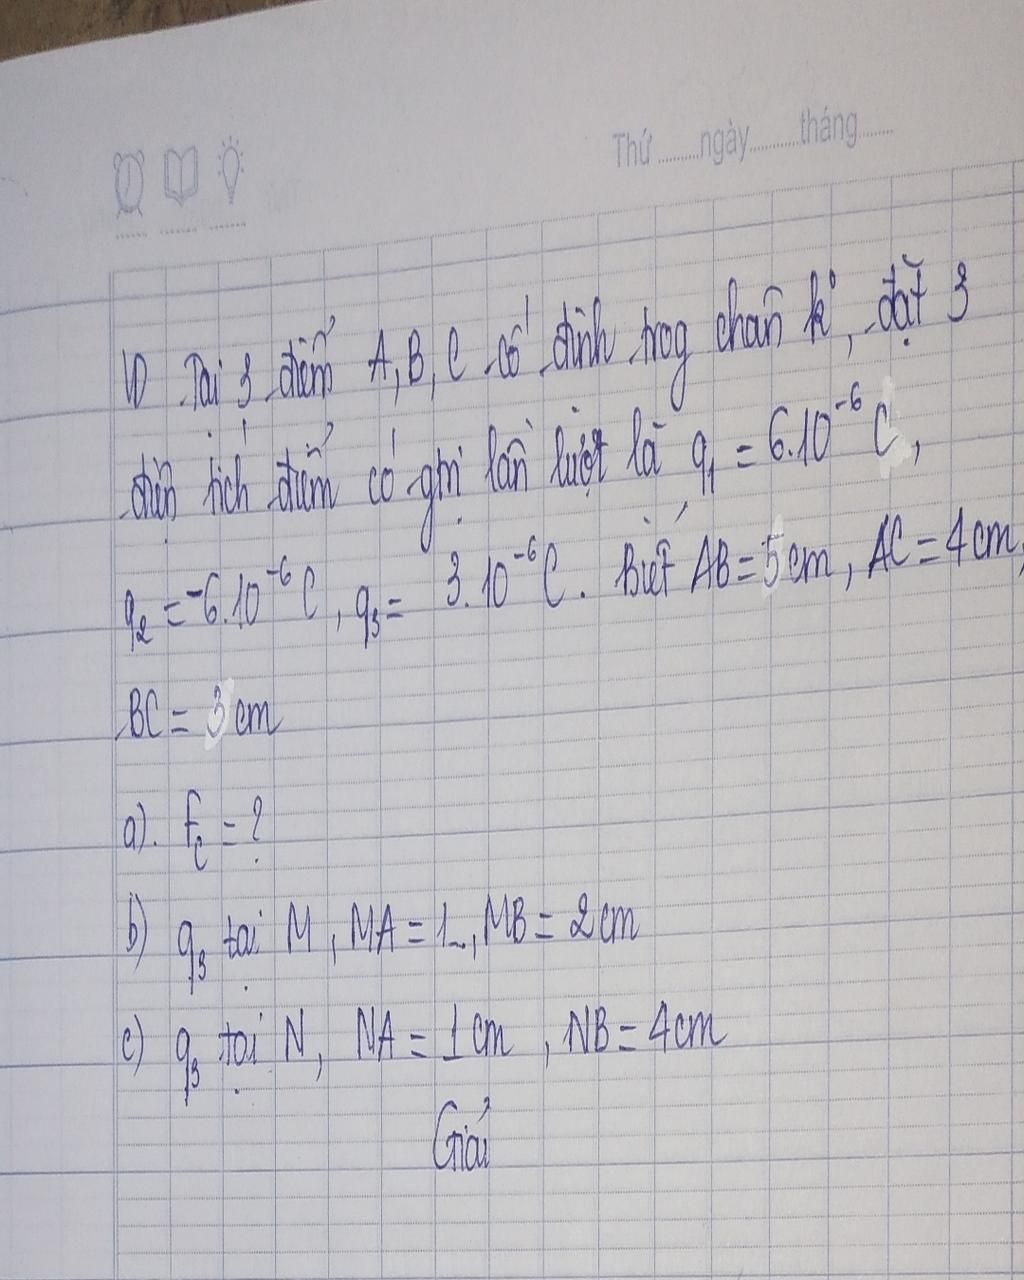 Thứ ........ngày..........tháng.......
1) Tại 3 điểm A, B, C cố định trog chân k°, đặt 3
điện tích điểm có gtrị lần lượt là q₁ = 6.10⁻⁶ C,
q₂ = -6.10⁻⁶ C, q₃ = 3.10⁻⁶ C. Biết AB = 5cm, AC = 4cm,
BC = 3cm
a). F_C = ?
b) q₃ tại M, MA = 1.., MB = 2cm
c) q₃ tại N, NA = 1cm, NB = 4cm
Giải